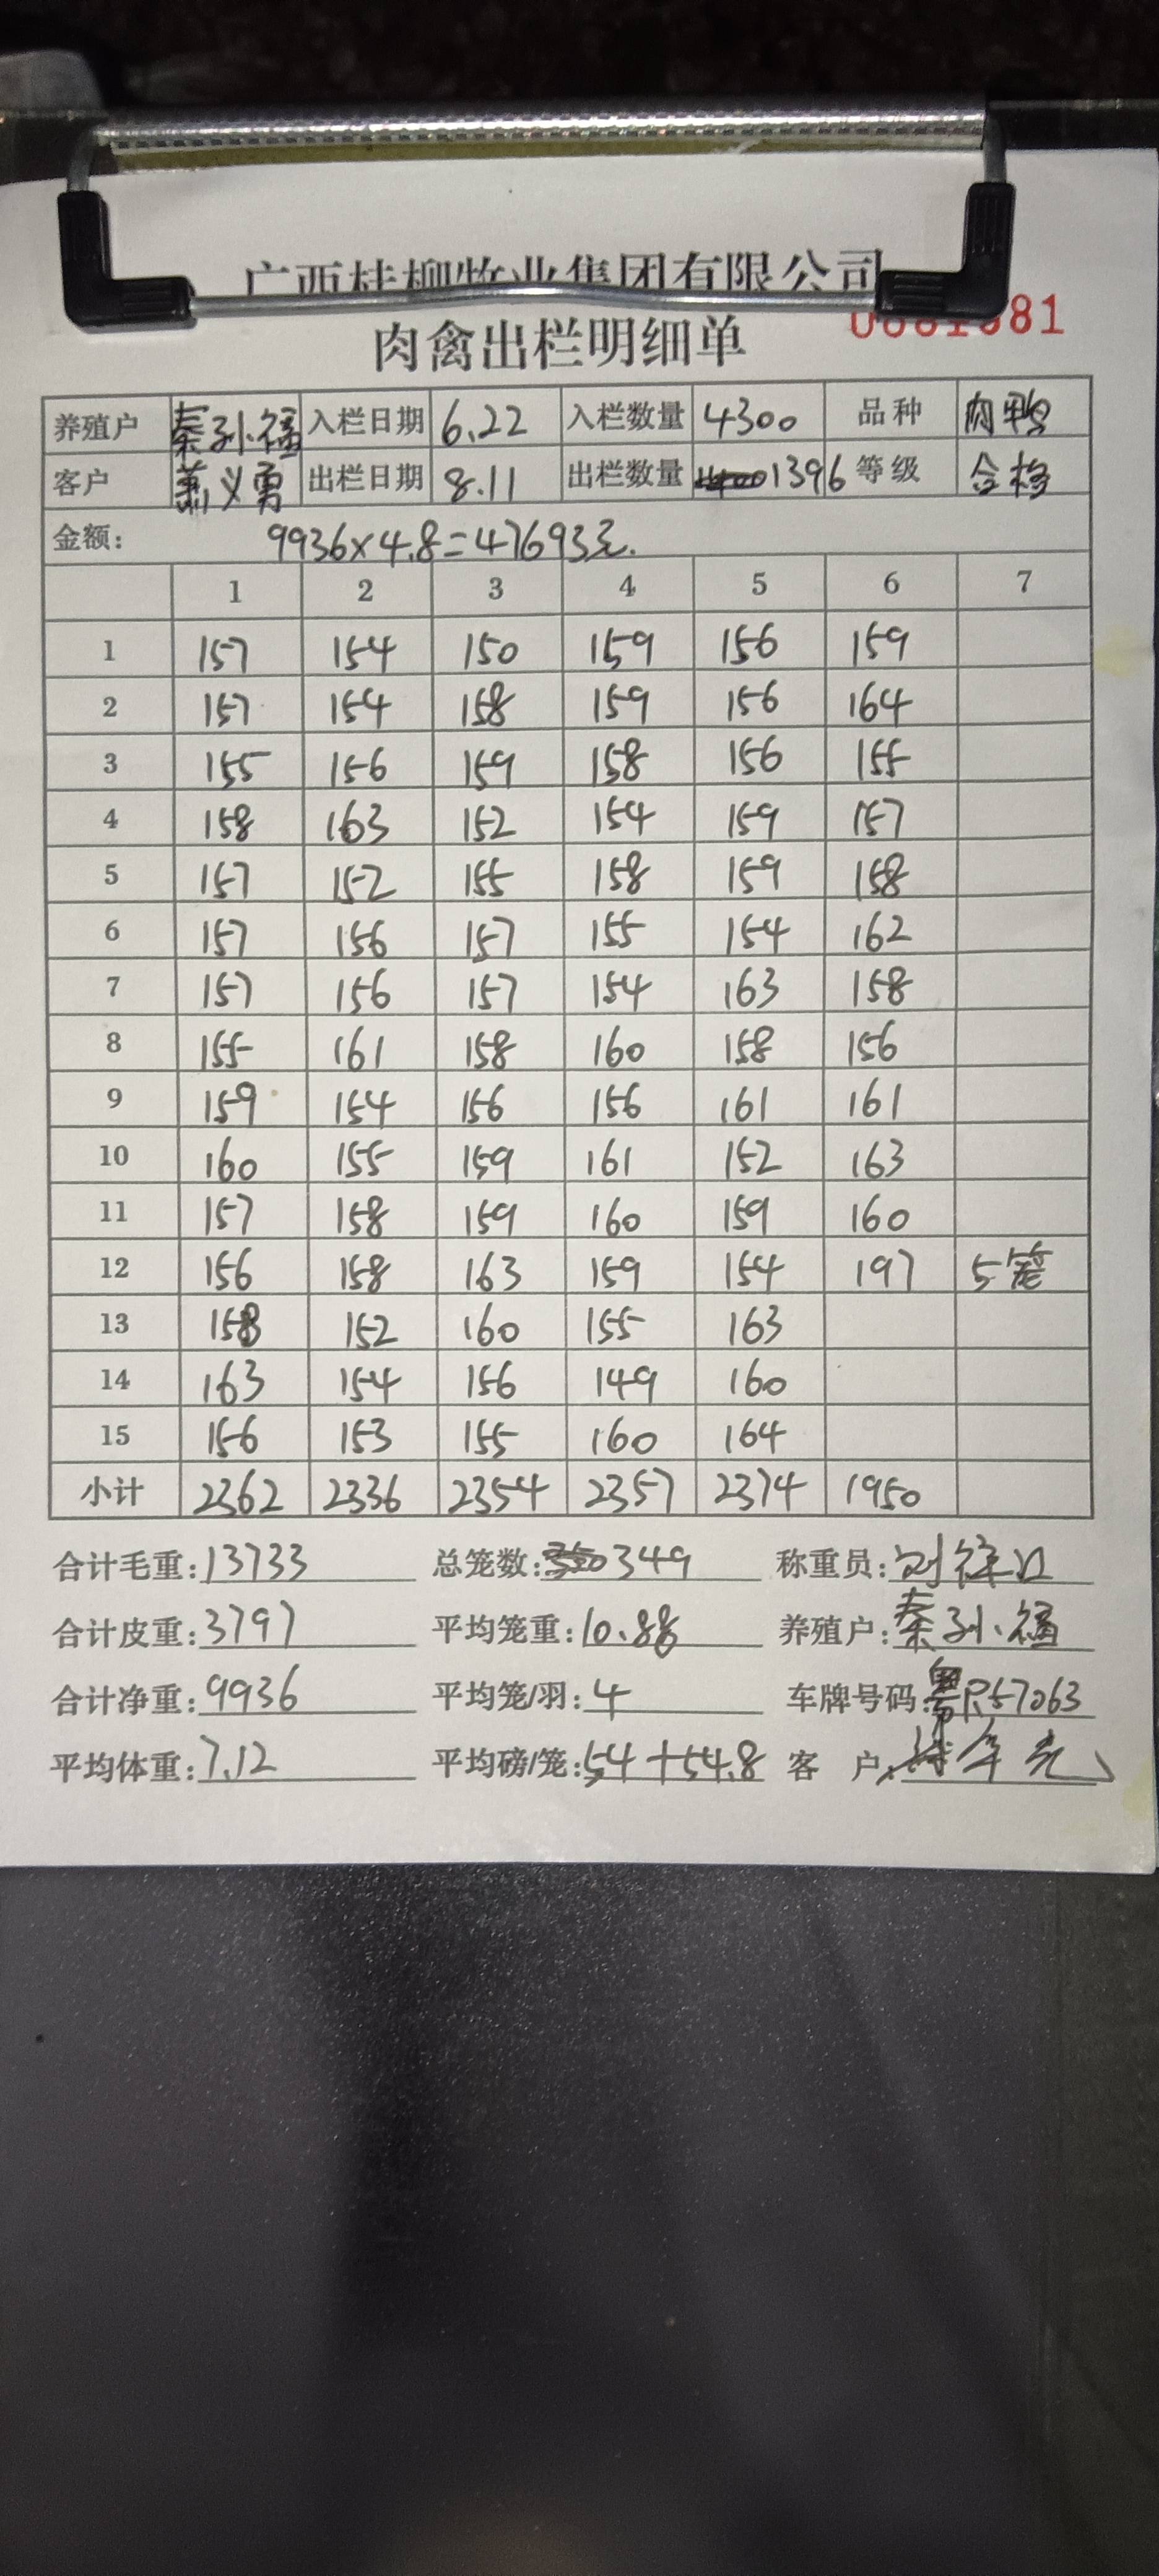 广西桂柳牧业集团有限公司
肉禽出栏明细单
81
养殖户 秦孙福 入栏日期 6.22 入栏数量 4300 品种 肉鸭
客户 萧义勇 出栏日期 8.11 出栏数量 1396 等级 合格
金额: 9936×4.8=47693元.
1 2 3 4 5 6 7
1 157 154 150 159 156 159
2 157 154 158 159 156 164
3 155 156 159 158 156 155
4 158 163 152 154 159 157
5 157 152 155 158 159 158
6 157 156 157 155 154 162
7 157 156 157 154 163 158
8 155 161 158 160 158 156
9 159 154 156 156 161 161
10 160 155 159 161 152 163
11 157 158 159 160 159 160
12 156 158 163 159 154 197 5笼
13 158 152 160 155 163
14 163 154 156 149 160
15 156 153 155 160 164
小计 2362 2336 2354 2357 2374 1950
合计毛重:13733 总笼数:349 称重员:刘
合计皮重:3797 平均笼重:10.88 养殖户:秦孙福
合计净重:9936 平均笼/羽:4 车牌号码:粤R57063
平均体重:7.12 平均磅/笼:54+54.8 客 户: